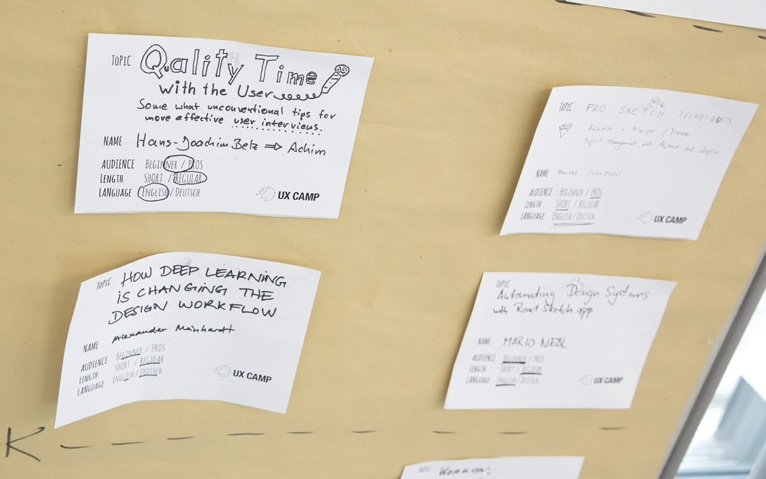 TOPIC Qality Time
with the User
Some what unconventional tips for
more effective user interviews.
NAME Hans-Joachim Belz ⇒ Achim
AUDIENCE BEGINNER / PROS
LENGTH SHORT / REGULAR
LANGUAGE ENGLISH / DEUTSCH
UX CAMP
TOPIC PRO SKETCH TECHNIQUES
NAME
AUDIENCE BEGINNER / PROS
LENGTH SHORT / REGULAR
LANGUAGE ENGLISH / DEUTSCH
UX CAMP
TOPIC HOW DEEP LEARNING
IS CHANGING THE
DESIGN WORKFLOW
NAME Alexander Meinhardt
AUDIENCE BEGINNER / PROS
LENGTH SHORT / REGULAR
LANGUAGE ENGLISH / DEUTSCH
UX CAMP
TOPIC
Automating Design Systems
with React Sketch app
NAME MARIO
AUDIENCE BEGINNER / PROS
LENGTH SHORT / REGULAR
LANGUAGE ENGLISH / DEUTSCH
UX CAMP
K
TOPIC